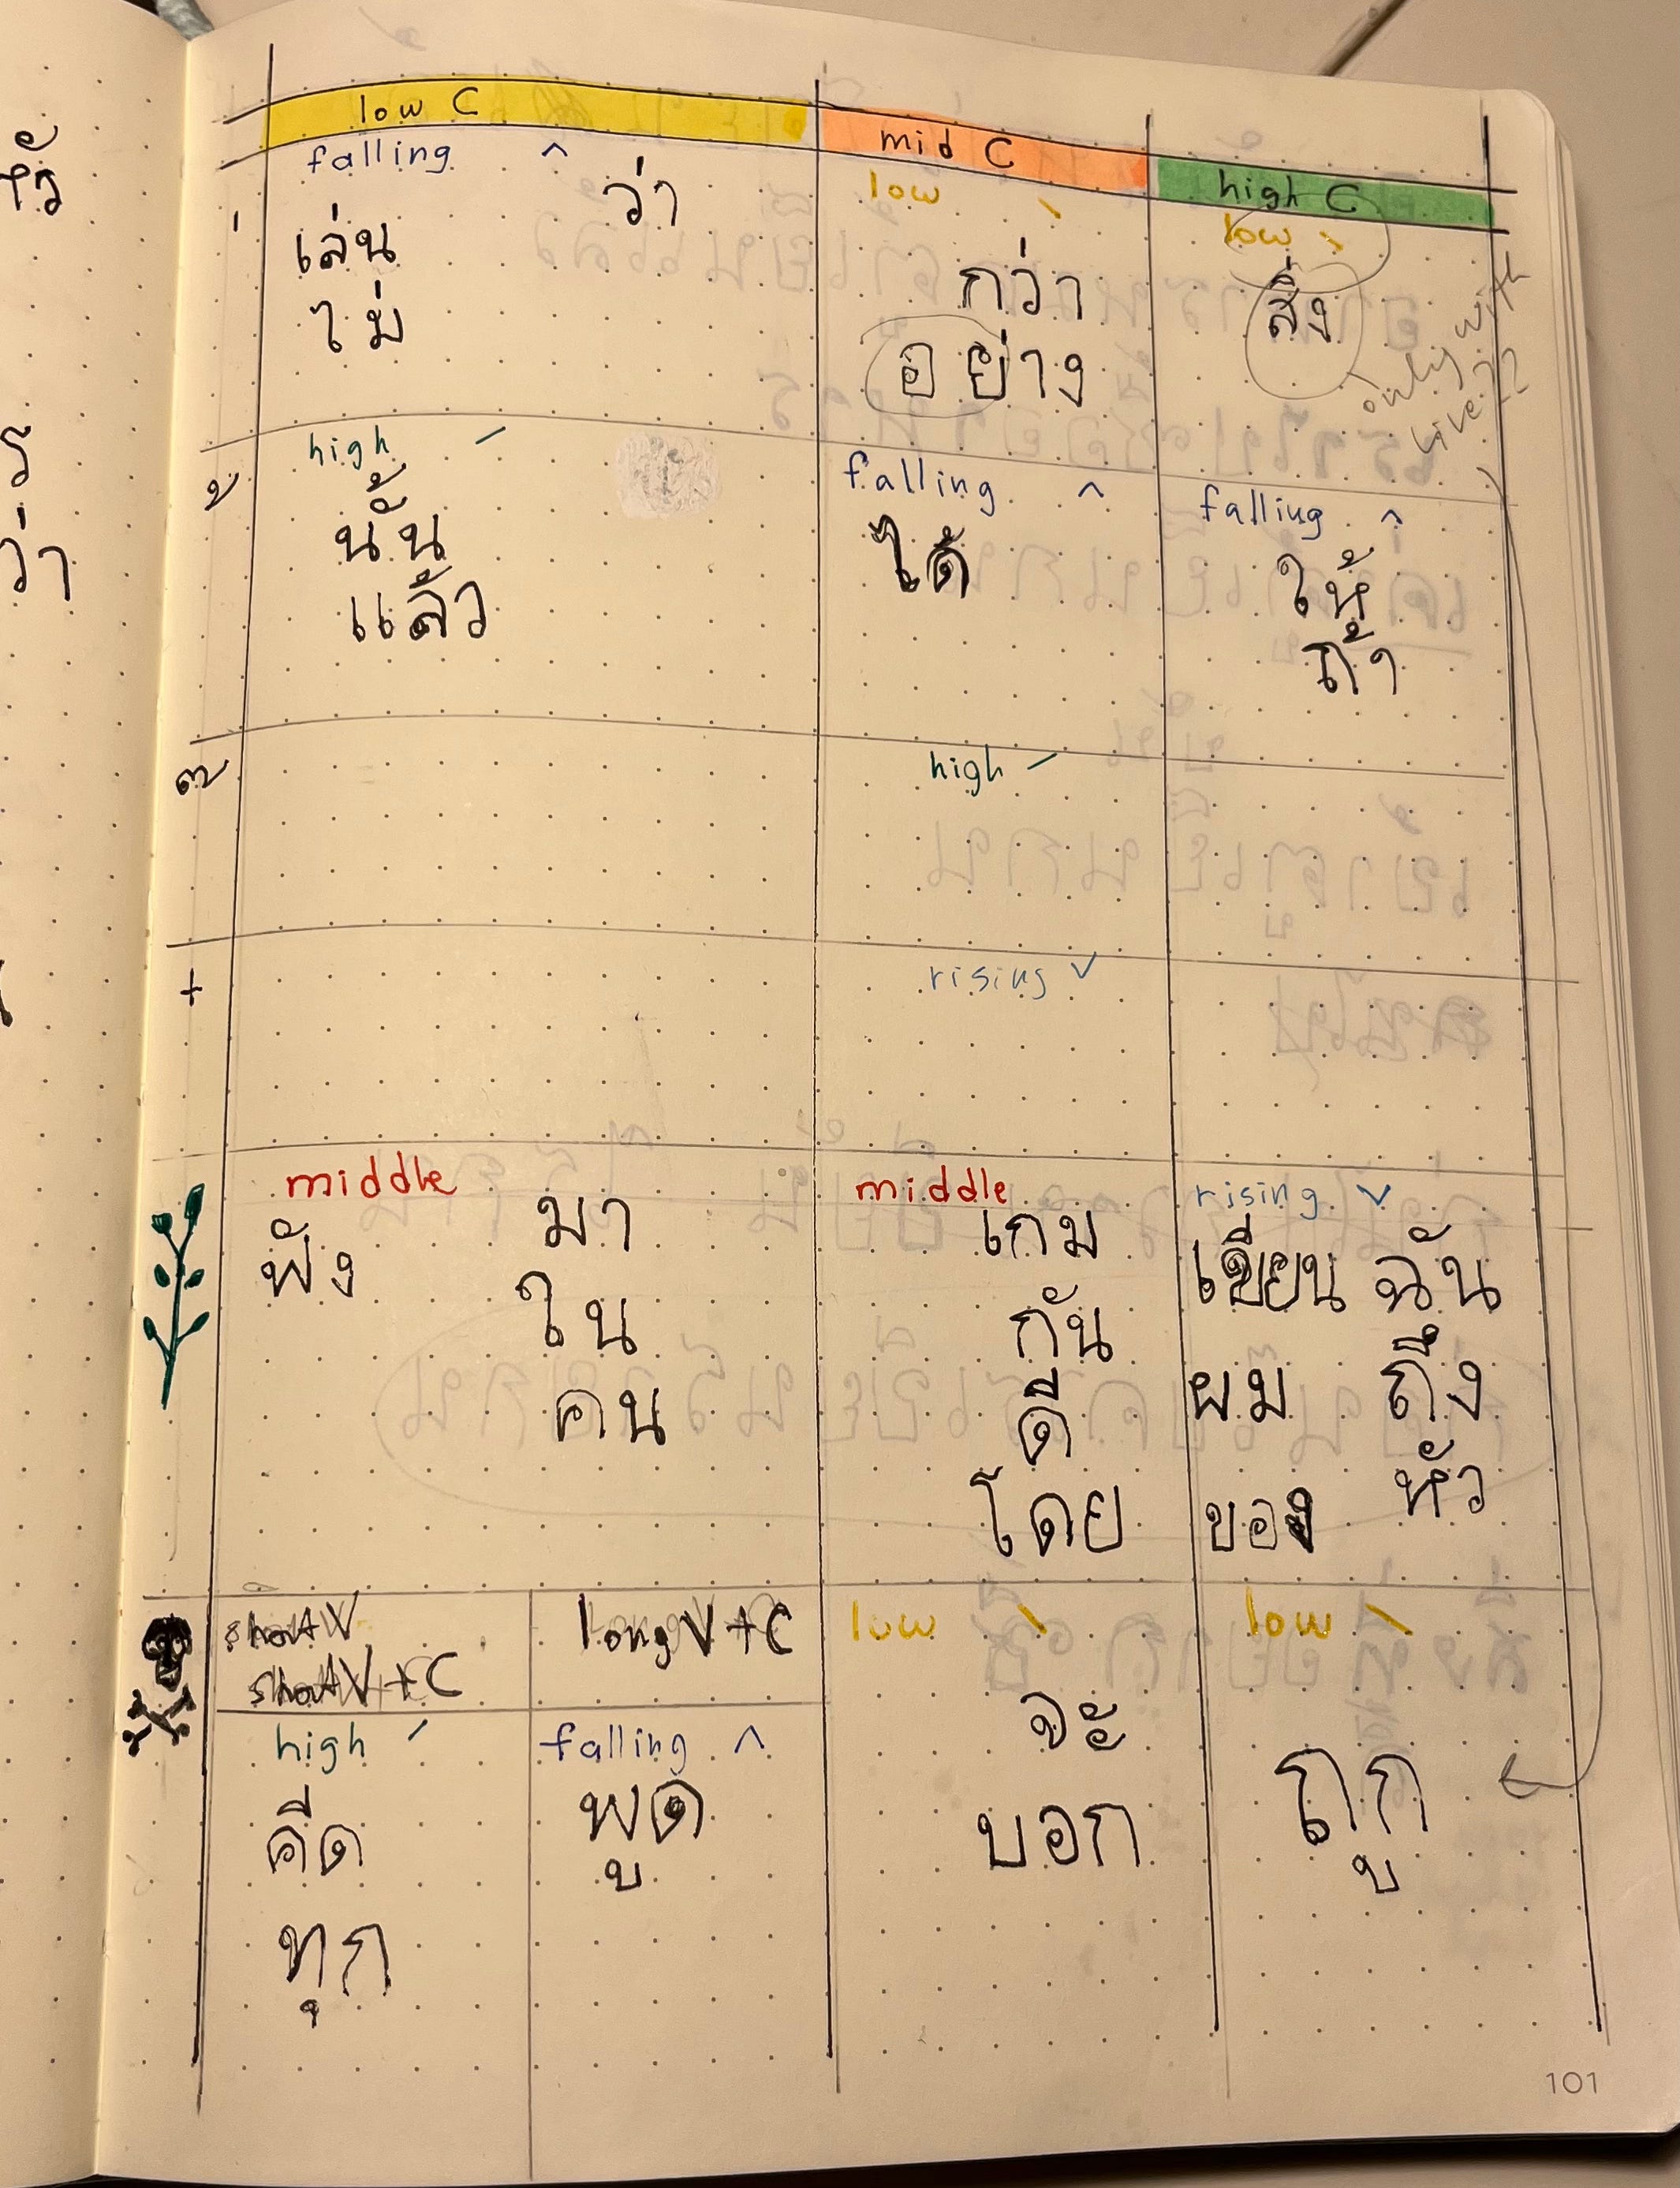 low C
mid C
high C
falling ^
เล่น
ว่า
ไม่
low \
กว่า
อย่าง
low \
สิ่ง
only with
live??
high /
นั้น
แล้ว
falling ^
ได้
falling ^
ให้
ถ้า
high /
rising v
middle
ฟัง
มา
ใน
คน
middle
เกม
กัน
ดี
โดย
rising v
เขียน ฉัน
ผม ถึง
ของ หัว
short V
short V + C
long V + C
high /
คิด
ทุก
falling ^
พูด
low \
จะ
บอก
low \
ถูก
101